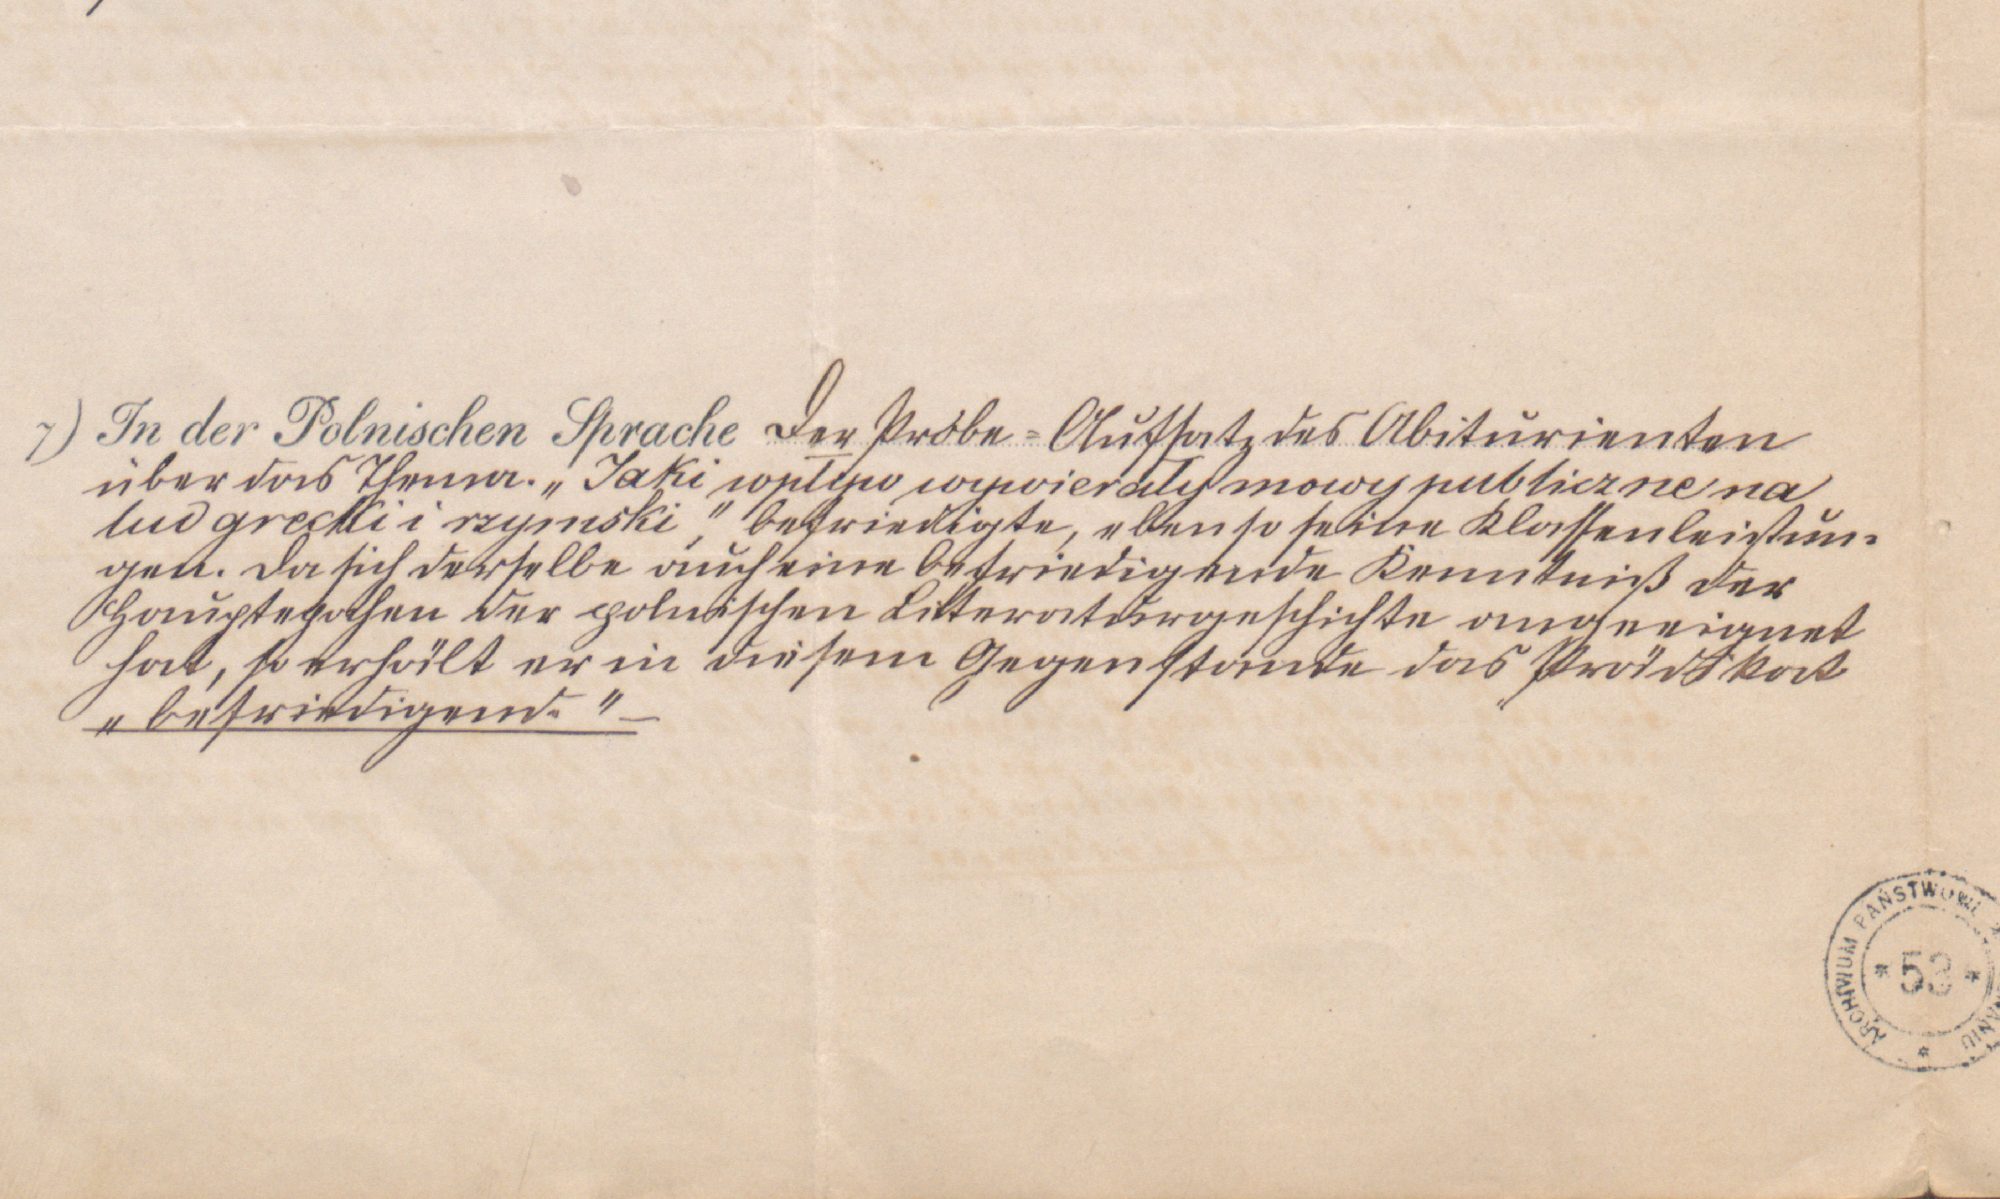 7) In der Polnischen Sprache Der Probe-Aufsatz des Abiturienten
über das Thema. „Jaki wpływ wywierały mowy publiczne na
lud grecki i rzymski," befriedigte, ebenso seine Klassenleistun-
gen. Da sich derselbe auch eine befriedigende Kenntniß der
Hauptepochen der polnischen Litteraturgeschichte angeeignet
hat, so erhält er in diesem Gegenstande das Prädikat
„befriedigend." –
ARCHIWUM PAŃSTWOWE
* 53 *